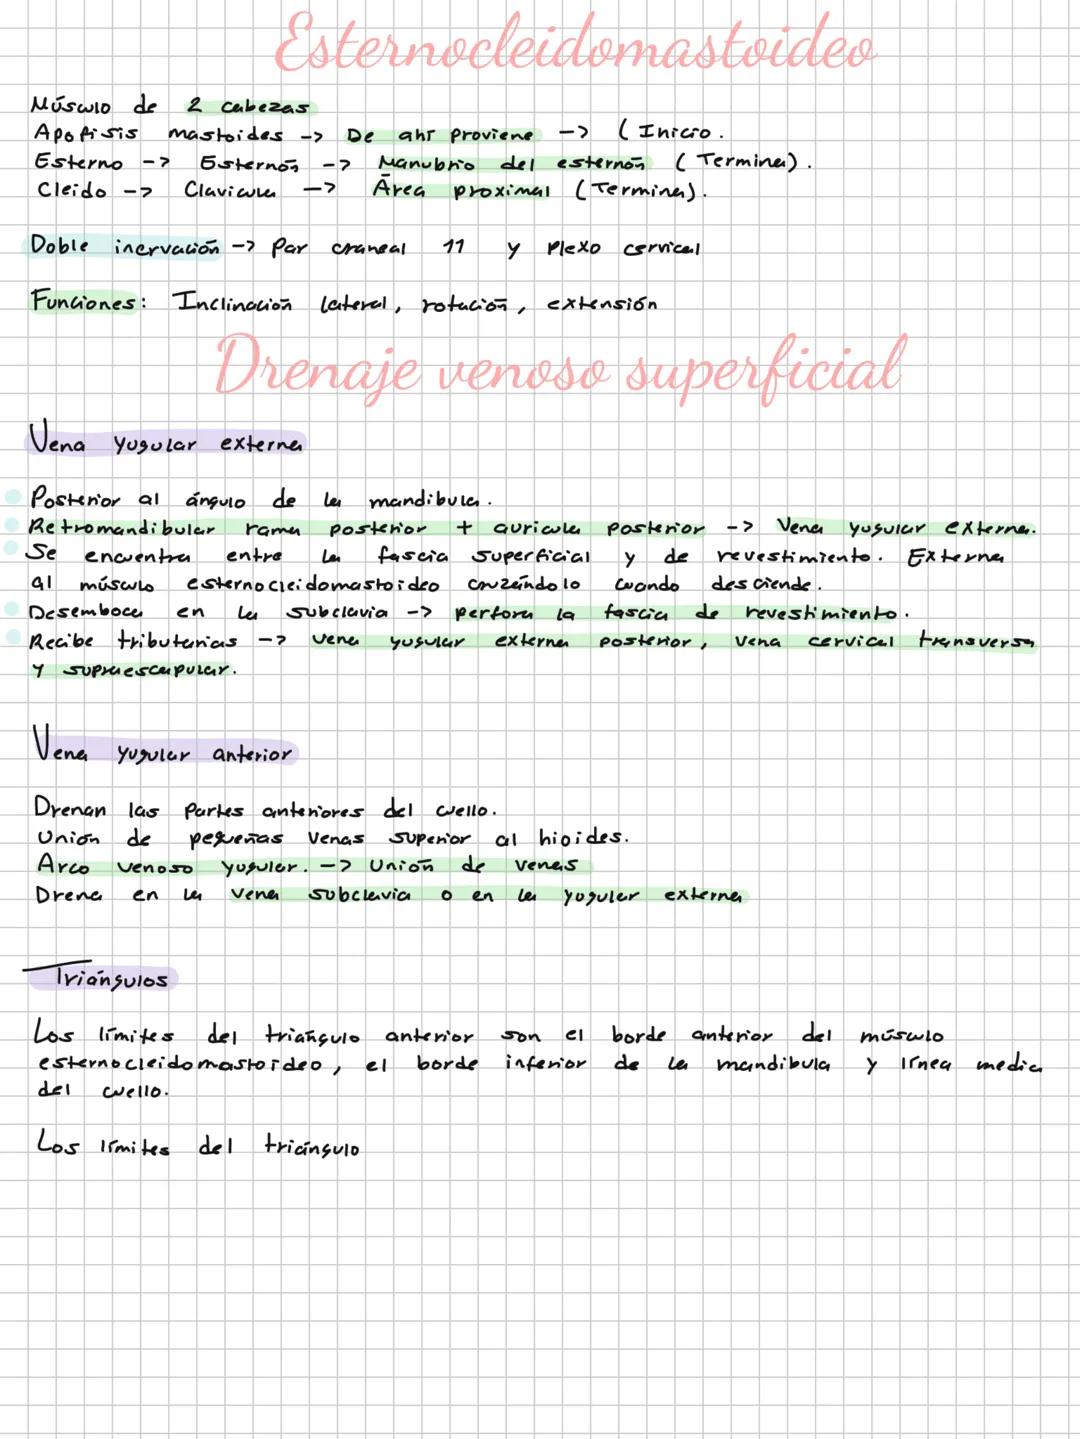 Esternocleidomastoideo
Músculo de 2 cabezas
Apofisis mastoides -> De ahí proviene -> (Inicio.
Esterno -> Esternón -> Manubrio del esternón (Termina).
Cleido -> Clavicula -> Área proximal (Termina).
Doble inervación -> Par craneal 11 y Plexo cervical
Funciones: Inclinación lateral, rotación, extensión
Drenaje venoso superficial
Vena yugular externa
Posterior al ángulo de la mandibula.
Retromandibular rama posterior + auricula posterior -> Vena yugular externa.
Se encuentra entre la fascia superficial y de revestimiento. Externa
al músculo esternocleidomastoideo cruzándolo cuando desciende.
Desemboca en la subclavia -> perfora la fascia de revestimiento.
Recibe tributarias -> vena yugular externa posterior, vena cervical transversa
y supraescapular.
Vena yugular anterior
Drenan las partes anteriores del cuello.
Unión de pequeñas venas superior al hioides.
Arco venoso yugular. -> Unión de venas
Drena en la vena subclavia o en la yugular externa
Triángulos
Los límites del triángulo anterior son el borde anterior del músculo
esternocleidomastoideo, el borde inferior de la mandibula y línea media
del cuello.
Los límites del triángulo